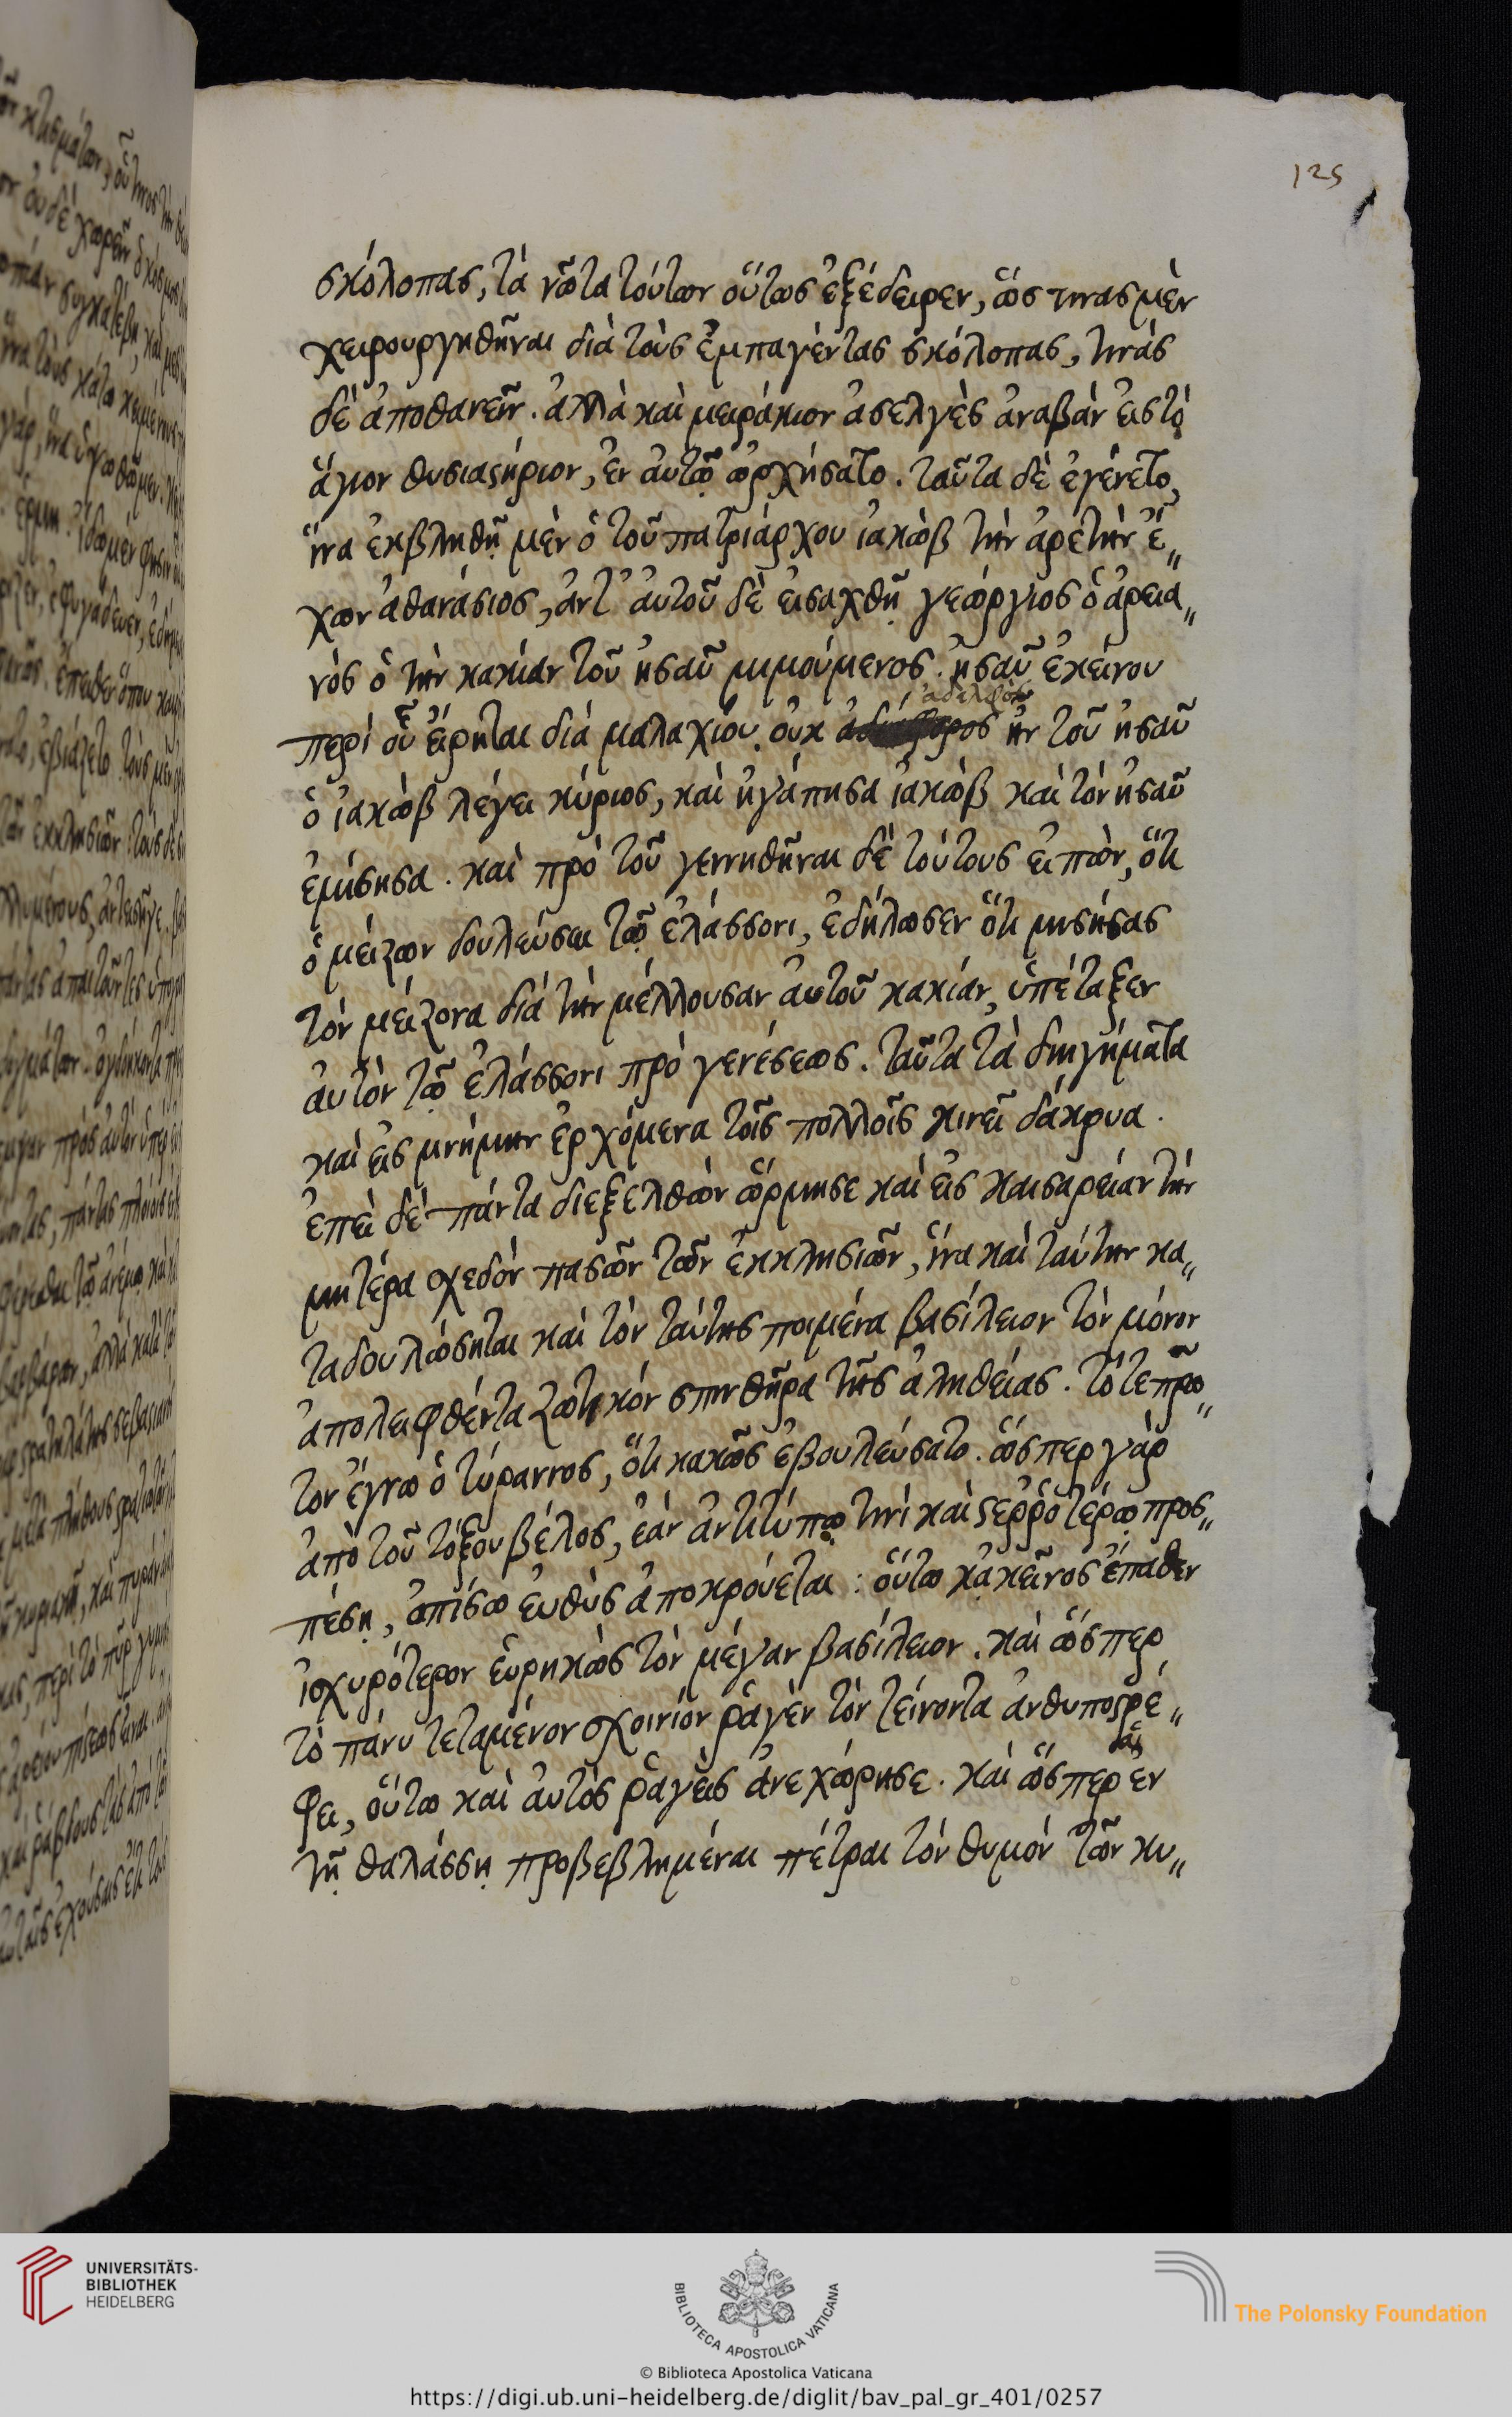 125
σκόλοπας, τὰ νῶτα τούτων οὕτως ἐξέδειρεν, ὥς τινας μὲν
χειρουργηθῆναι διὰ τοὺς ἐμπαγέντας σκόλοπας, τινὰς
δὲ ἀποθανεῖν. ἀλλὰ καὶ μειράκιον ἀσελγὲς ἀναβὰν εἰς τὸ
ἅγιον θυσιαστήριον, ἐν αὐτῷ ὠρχήσατο. ταῦτα δὲ ἐγένετο,
ἵνα ἐκβληθῇ μὲν ὁ τοῦ πατριάρχου ἰακὼβ τὴν ἀρετὴν ἔ„
χων ἀθανάσιος, ἀντ' αὐτοῦ δὲ εἰσαχθῇ γεώργιος ὁ ἀρεια„
νὸς ὁ τὴν κακίαν τοῦ ἠσαῦ μιμούμενος. ἠσαῦ ἐκείνου
ἀδελφὸς
περὶ οὗ εἴρηται διὰ μαλαχίου. οὐκ ἦν τοῦ ἠσαῦ
ὁ ἰακὼβ λέγει κύριος, καὶ ἠγάπησα ἰακὼβ καὶ τὸν ἠσαῦ
ἐμίσησα. καὶ πρὸ τοῦ γεννηθῆναι δὲ τούτους εἰπὼν, ὅτι
ὁ μείζων δουλεύσει τῷ ἐλάσσονι, ἐδήλωσεν ὅτι μισήσας
τὸν μείζονα διὰ τὴν μέλλουσαν αὐτοῦ κακίαν, ὑπέταξεν
αὐτὸν τῷ ἐλάσσονι πρὸ γενέσεως. ταῦτα τὰ διηγήματα
καὶ εἰς μνήμην ἐρχόμενα τοῖς πολλοῖς κινεῖ δάκρυα.
ἐπεὶ δὲ πάντα διεξελθὼν ὥρμησε καὶ εἰς καισαρείαν τὴν
μητέρα σχεδὸν πασῶν τῶν ἐκκλησιῶν, ἵνα καὶ ταύτην κα„
ταδουλώσηται καὶ τὸν ταύτης ποιμένα βασίλειον τὸν μόνον
ἀπολειφθέντα ζωτικὸν σπινθῆρα τῆς ἀληθείας. τότε πρῶ„
τον ἔγνω ὁ τύραννος, ὅτι κακῶς ἐβουλεύσατο. ὥσπερ γὰρ
ἀπὸ τοῦ τόξου βέλος, ἐὰν ἀντιτύπῳ τινὶ καὶ στερροτέρῳ προσ„
πέσῃ, ὀπίσω εὐθὺς ἀποκρούεται: οὕτω κἀκεῖνος ἔπαθεν
ἰσχυρότερον εὑρηκὼς τὸν μέγαν βασίλειον. καὶ ὥσπερ
τὸ πάνυ τεταμένον σχοινίον ῥαγὲν τὸν τείνοντα ἀνθυποστρέ„
φει, οὕτω καὶ αὐτὸς ῥαγεὶς ἀνεχώρησε. καὶ ὥσπερ ἐν
τῇ θαλάσσῃ προβεβλημέναι πέτραι τὸν θυμὸν τῶν κυ„
UNIVERSITÄTS-
BIBLIOTHEK
HEIDELBERG
BIBLIOTECA APOSTOLICA VATICANA
© Biblioteca Apostolica Vaticana
The Polonsky Foundation
https://digi.ub.uni-heidelberg.de/diglit/bav_pal_gr_401/0257